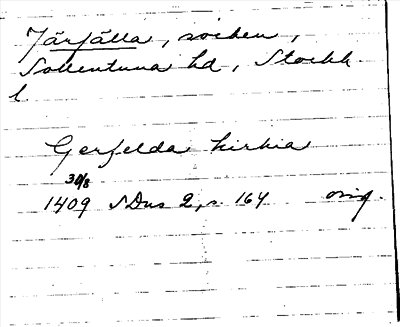 Järfälla, socken,
Sollentuna hd, Stockh
l
Gerfelda kirkia
30/8
1409 SDns 2, s. 164 orig.